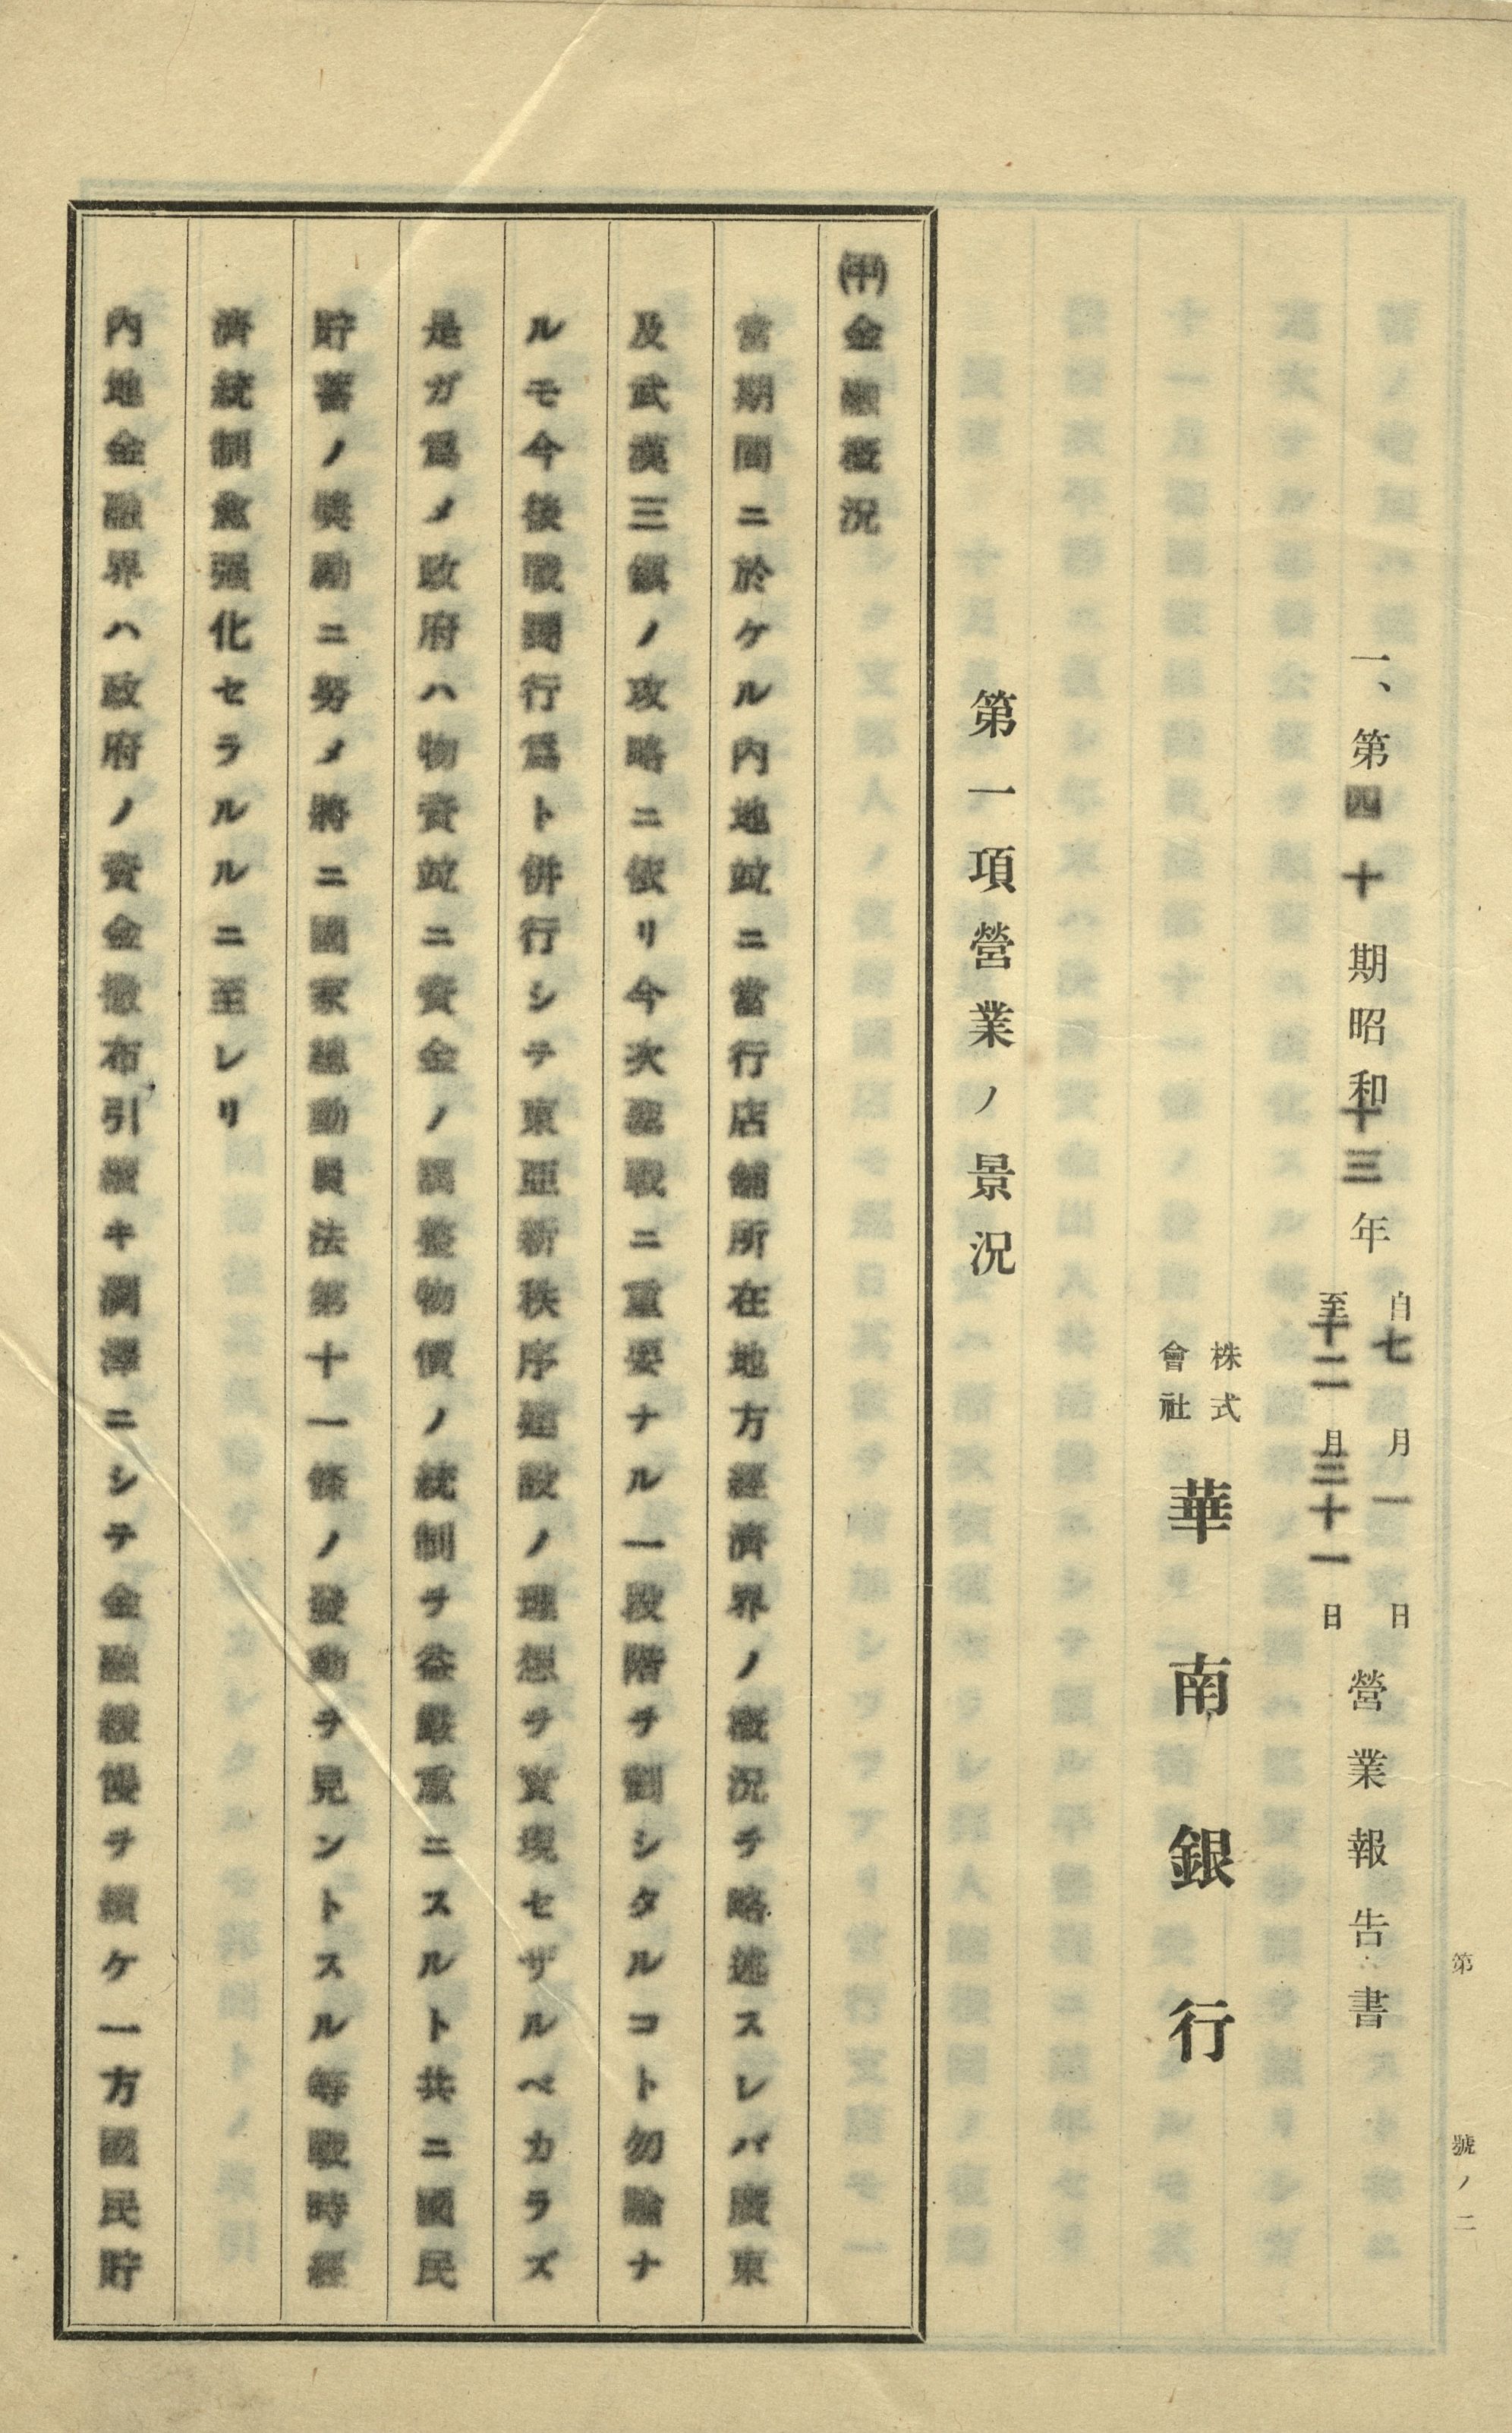 第　號ノ二
一、第四十期昭和十三年自七月一日至十二月三十一日營業報告書
株式會社華南銀行
第一項營業ノ景況
(甲)金融概況
當期間ニ於ケル內地竝ニ當行店舖所在地方經濟界ノ概況ヲ略述スレバ廣東
及武漢三鎭ノ攻略ニ依リ今次聖戰ニ重要ナル一段階ヲ劃シタルコト勿論ナ
ルモ今後戰鬪行爲ト併行シテ東亞新秩序建設ノ理想ヲ實現セザルベカラズ
是ガ爲メ政府ハ物資竝ニ資金ノ調整物價ノ統制ヲ益嚴重ニスルト共ニ國民
貯蓄ノ奬勵ニ努メ將ニ國家總動員法第十一條ノ發動ヲ見ントスル等戰時經
濟統制愈强化セラルルニ至レリ
內地金融界ハ政府ノ資金撒布引續キ潤澤ニシテ金融緩慢ヲ續ケ一方國民貯